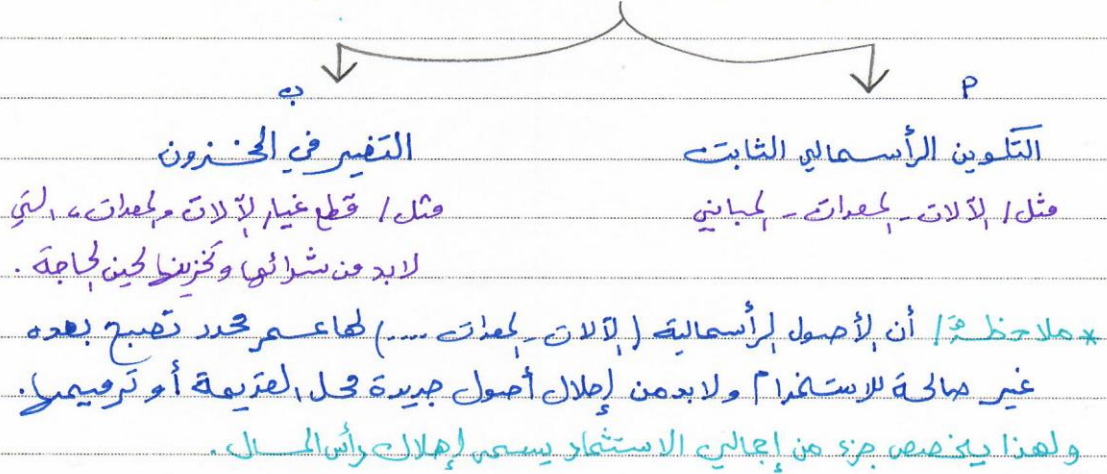 أ
ب
التكوين الرأسمالي الثابت
التغير في المخزون
مثل/ الآلات - المعدات - المباني
مثل/ قطع غيار الآلات والمعدات، التي
لابد من شرائها وتخزينها لحين الحاجة.
*ملاحظة/ أن الأصول الرأسمالية (الآلات - المعدات ....) لها عمر محدد تصبح بعده
غير صالحة للاستخدام ولابد من إحلال أصول جديدة محل القديمة أو ترميمها.
ولهذا يخصص جزء من إجمالي الاستثمار يسمى إهلاك رأس المال.